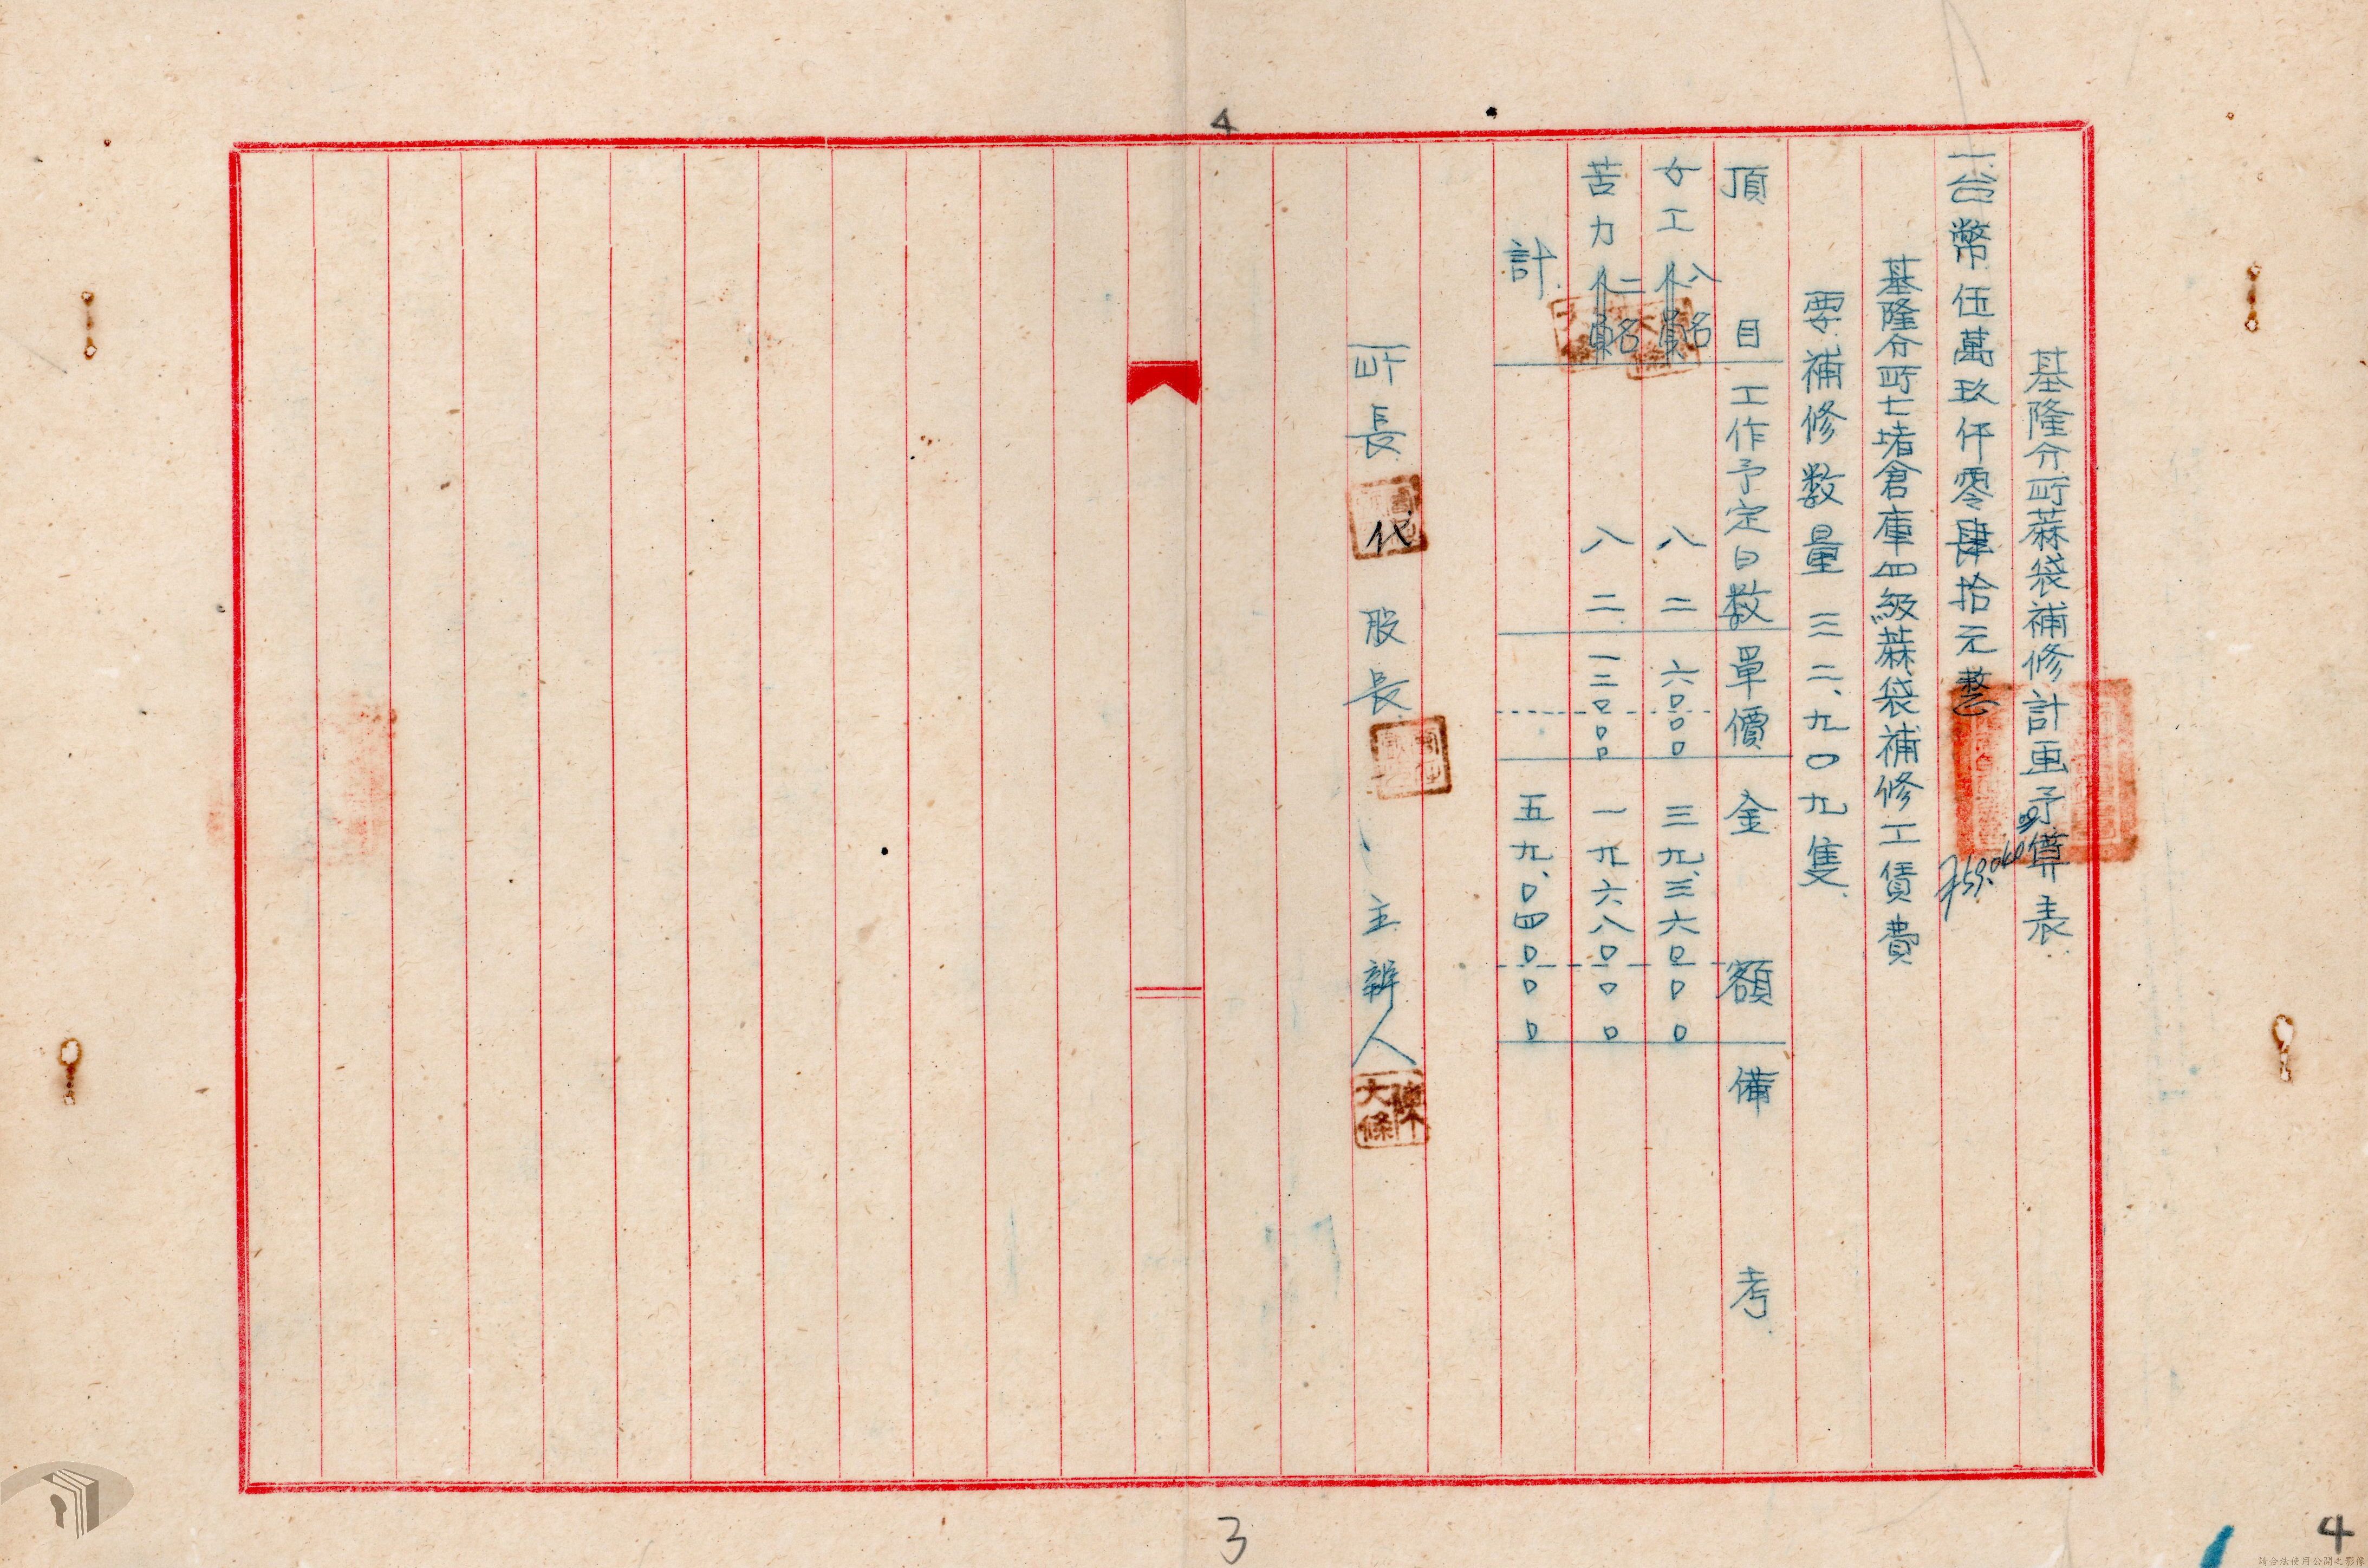 4
基隆分所蔴袋補修計画予算表
一、台幣伍萬玖仟零肆拾元整
59.040
基隆分所七堵倉庫四級蔴袋補修工賃費
要補修数量三二、九〇九隻
頂目 工作予定日数 單價 金額 備考
女工 八名 八二 六〇〇〇 三九、三六〇〇〇
苦力 二名 八二 一二〇〇〇 一九六八〇〇〇
計 五九、〇四〇〇〇
所長 代 股長 主辦人
陳大條
3
4
請合法使用公開之影像